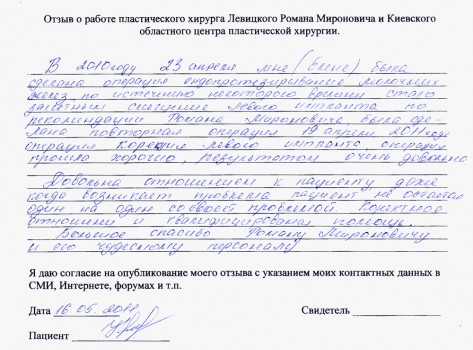 Отзыв о работе пластического хирурга Левицкого Романа Мироновича и Киевского
областного центра пластической хирургии.
В 2010 году 23 апреля мне (Елене) была
сделана операция ендопротезирование молочних
желез, по истечению некоторого времени стало
заметным смещение левого импланта по
рекомендации Романа Мироновича, была сде-
лана повторная операция 19 апреля 2011 года
операция Корекция левого импланта, операция
прошла хорошо, результатом очень довольна
Довольна отношением к пациенту даже
когда возникает проблема пациент не остается
один на один со своей проблемой. Коректное
отношение и квалифицирована помощь.
Большое спасибо Роману Мироновичу
и его чудесному персоналу
Я даю согласие на опубликование моего отзыва с указанием моих контактных данных в
СМИ, Интернете, форумах и т.п.
Дата 16.05.2011 Свидетель
Пациент